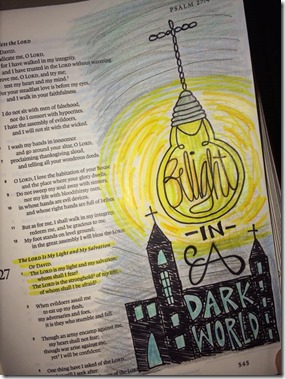 PSALM 27
less the LORD
DAVID.
dicate me, O LORD,
for I have walked in my integrity,
and I have trusted in the LORD without wavering.
ove me, O LORD, and try me;
test my heart and my mind.
or your steadfast love is before my eyes,
and I walk in your faithfulness.
I do not sit with men of falsehood,
nor do I consort with hypocrites.
I hate the assembly of evildoers,
and I will not sit with the wicked.
I wash my hands in innocence
and go around your altar, O LORD,
proclaiming thanksgiving aloud,
and telling all your wondrous deeds.
O LORD, I love the habitation of your house
and the place where your glory dwells.
Do not sweep my soul away with sinners,
nor my life with bloodthirsty men,
in whose hands are evil devices,
and whose right hands are full of bribes.
But as for me, I shall walk in my integrity;
redeem me, and be gracious to me.
My foot stands on level ground;
in the great assembly I will bless the LORD.
The LORD Is My Light and My Salvation
27
OF DAVID.
The LORD is my light and my salvation;
whom shall I fear?
The LORD is the stronghold of my life;
of whom shall I be afraid?
When evildoers assail me
to eat up my flesh,
my adversaries and foes,
it is they who stumble and fall.
Though an army encamp against me,
my heart shall not fear;
though war arise against me,
yet I will be confident.
One thing have I asked of the LORD,
Be light
-IN-
A
DARK
WORLD
545